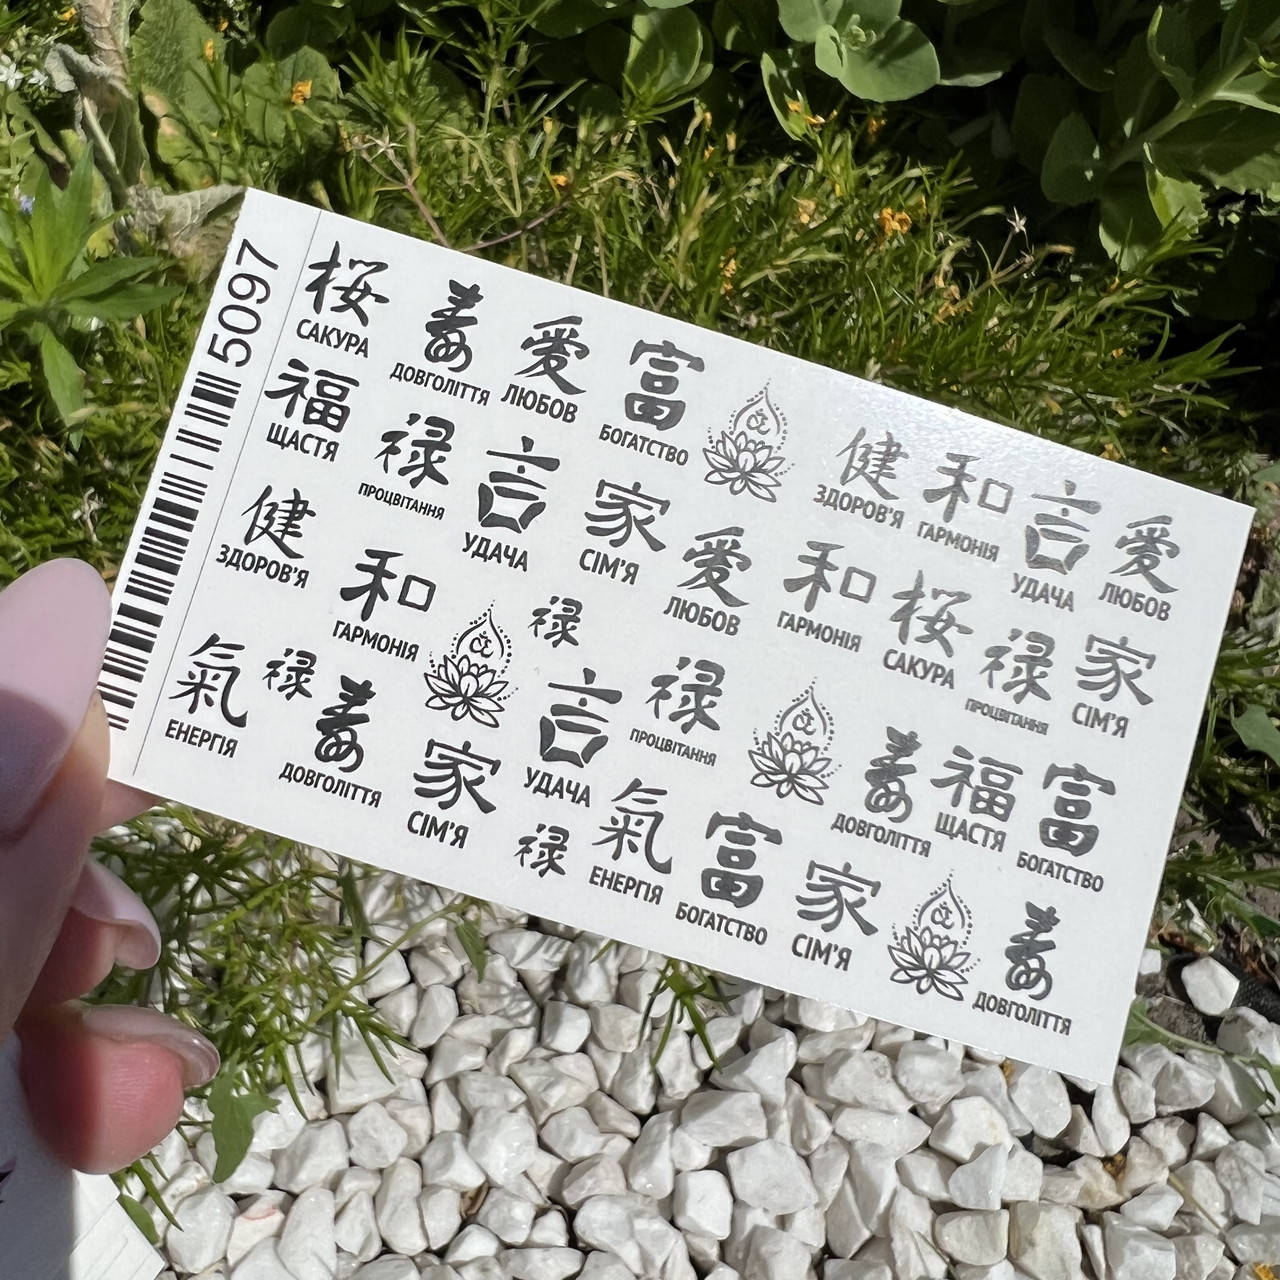 5097
桜
САКУРА
寿
ДОВГОЛІТТЯ
愛
ЛЮБОВ
富
БОГАТСТВО
健
ЗДОРОВ'Я
和
ГАРМОНІЯ
言
УДАЧА
愛
ЛЮБОВ
福
ЩАСТЯ
禄
ПРОЦВІТАННЯ
言
УДАЧА
家
СІМ'Я
愛
ЛЮБОВ
和
ГАРМОНІЯ
桜
САКУРА
禄
ПРОЦВІТАННЯ
家
СІМ'Я
健
ЗДОРОВ'Я
和
ГАРМОНІЯ
禄
言
УДАЧА
禄
ПРОЦВІТАННЯ
寿
ДОВГОЛІТТЯ
福
ЩАСТЯ
富
БОГАТСТВО
氣
ЕНЕРГІЯ
禄
寿
ДОВГОЛІТТЯ
家
СІМ'Я
禄
氣
ЕНЕРГІЯ
富
БОГАТСТВО
家
СІМ'Я
寿
ДОВГОЛІТТЯ